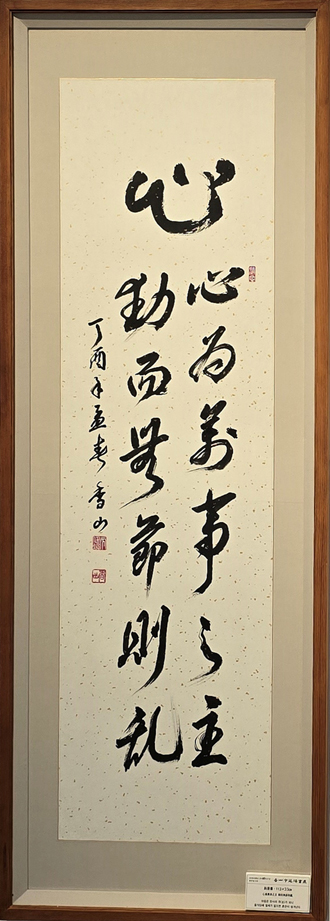 心
心為萬事之主
動而無節則乱
丁酉年孟春 香山